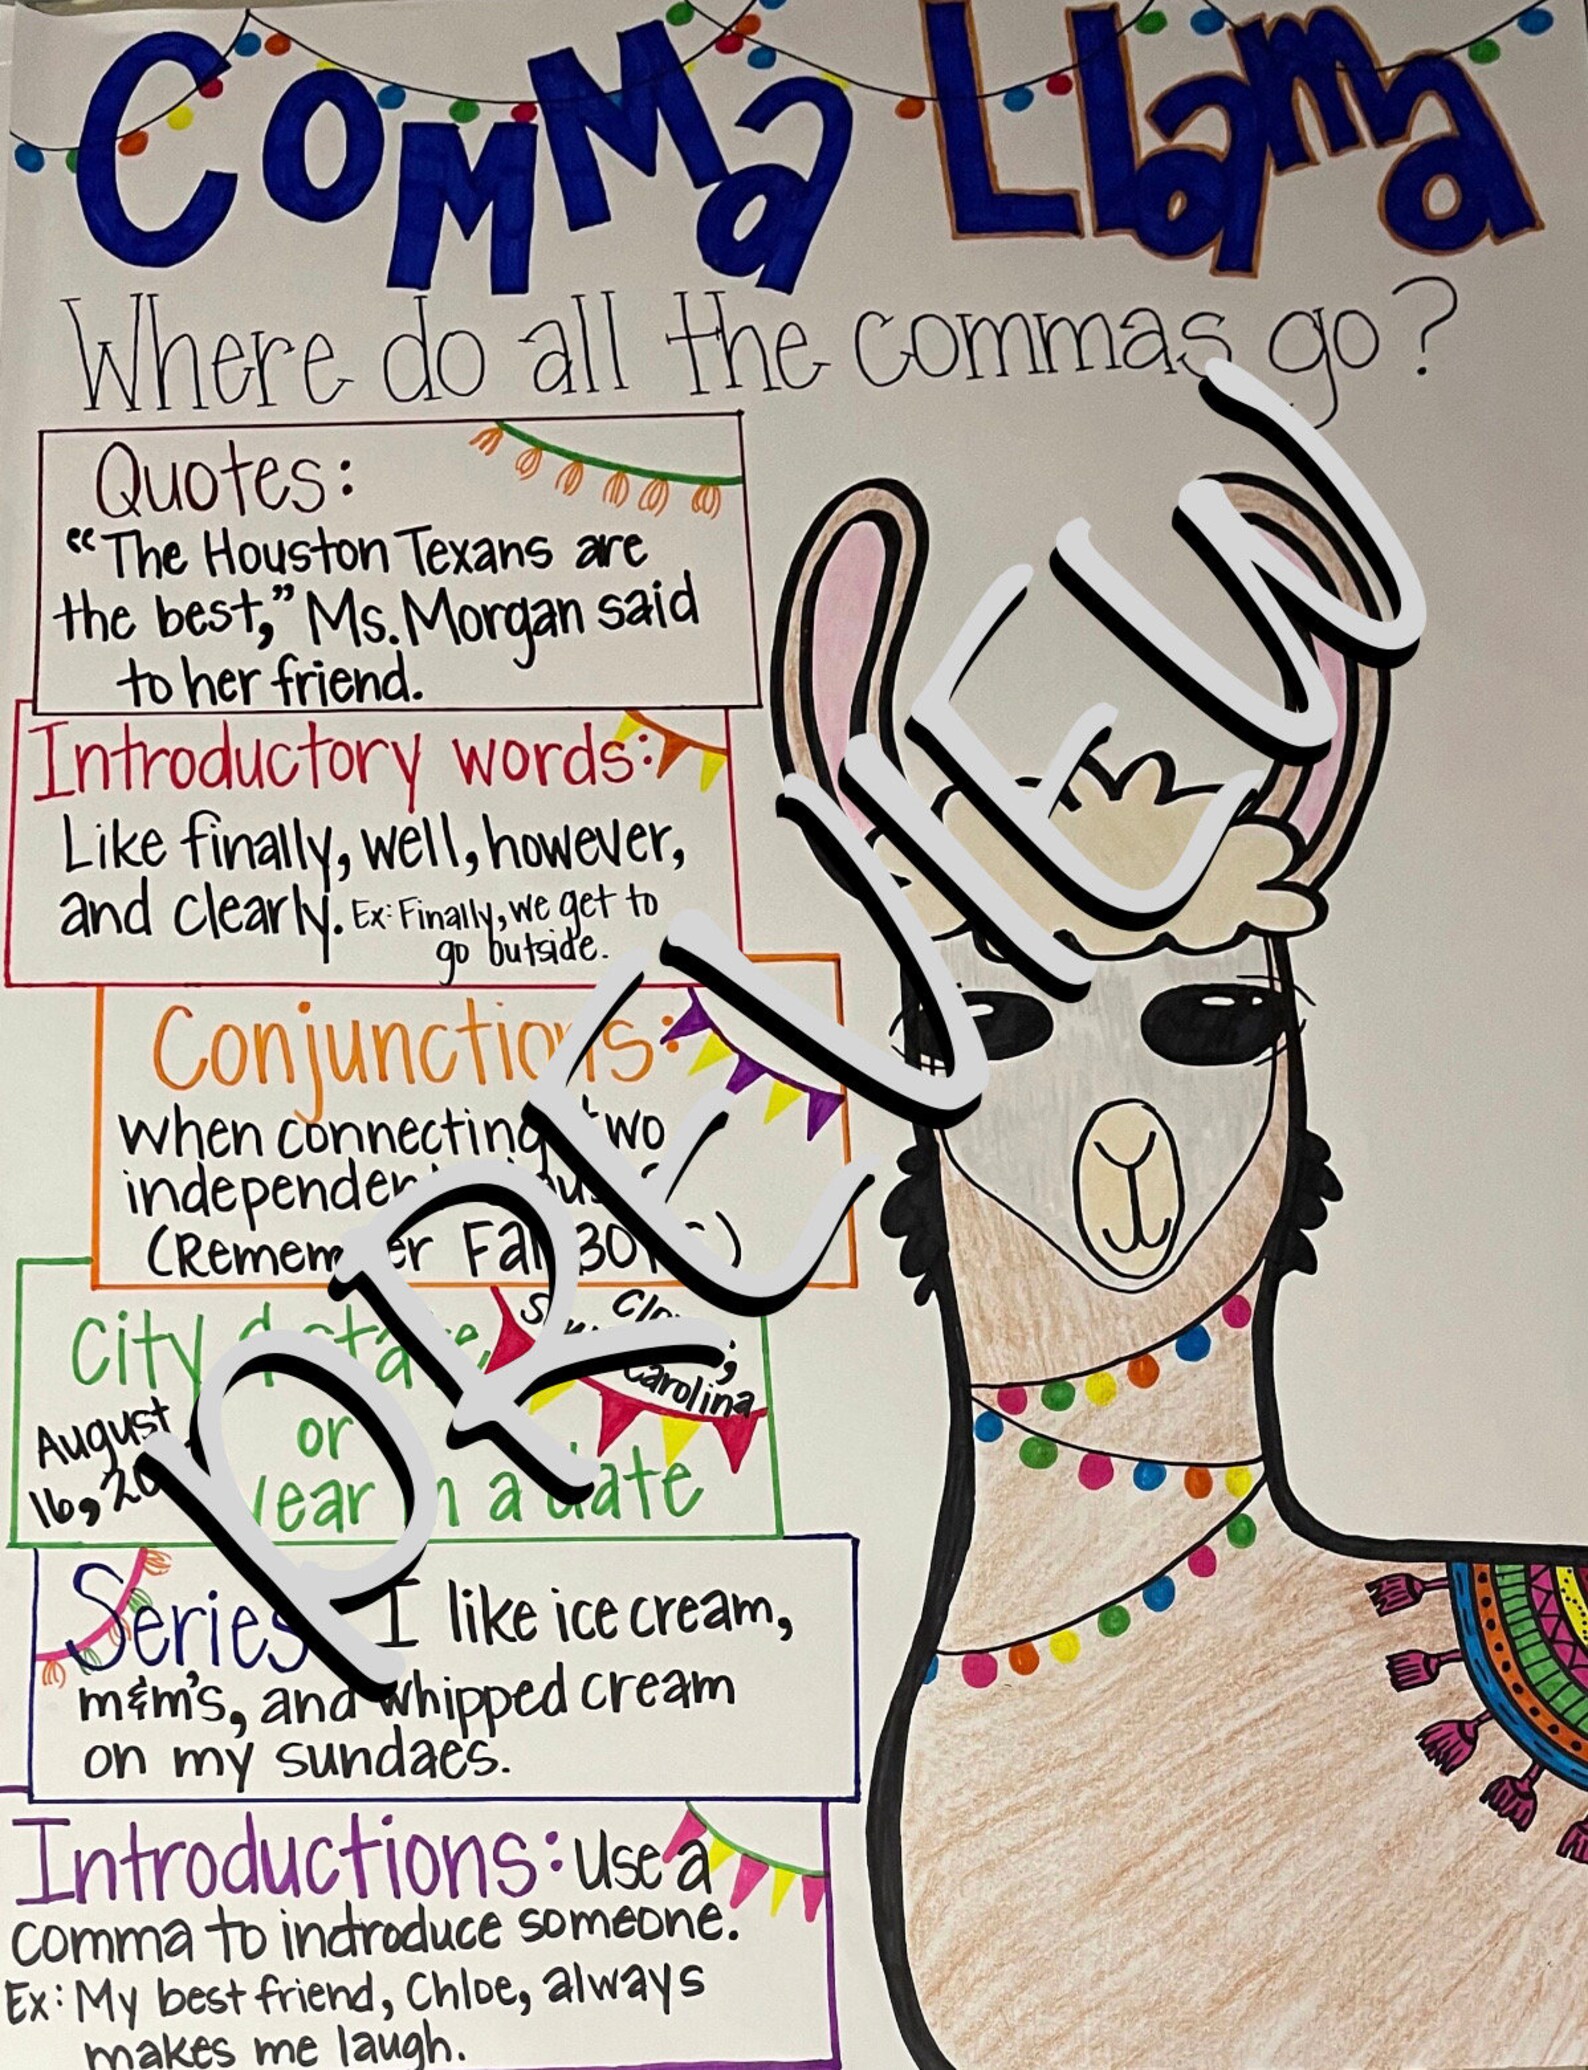 Comma Llama
Where do all the commas go?
Quotes:
“The Houston Texans are
the best,” Ms. Morgan said
to her friend.
Introductory words:
Like finally, well, however,
and clearly. Ex: Finally, we get to
go outside.
Conjunctions:
When connecting two
independent
(Remember Fan
City
Carolina
August
16,
or
year in a date
Series
I like ice cream,
m&m's, and whipped cream
on my sundaes.
Introductions: Use a
comma to indroduce someone.
Ex: My best friend, Chloe, always
makes me laugh.
PREVIEW